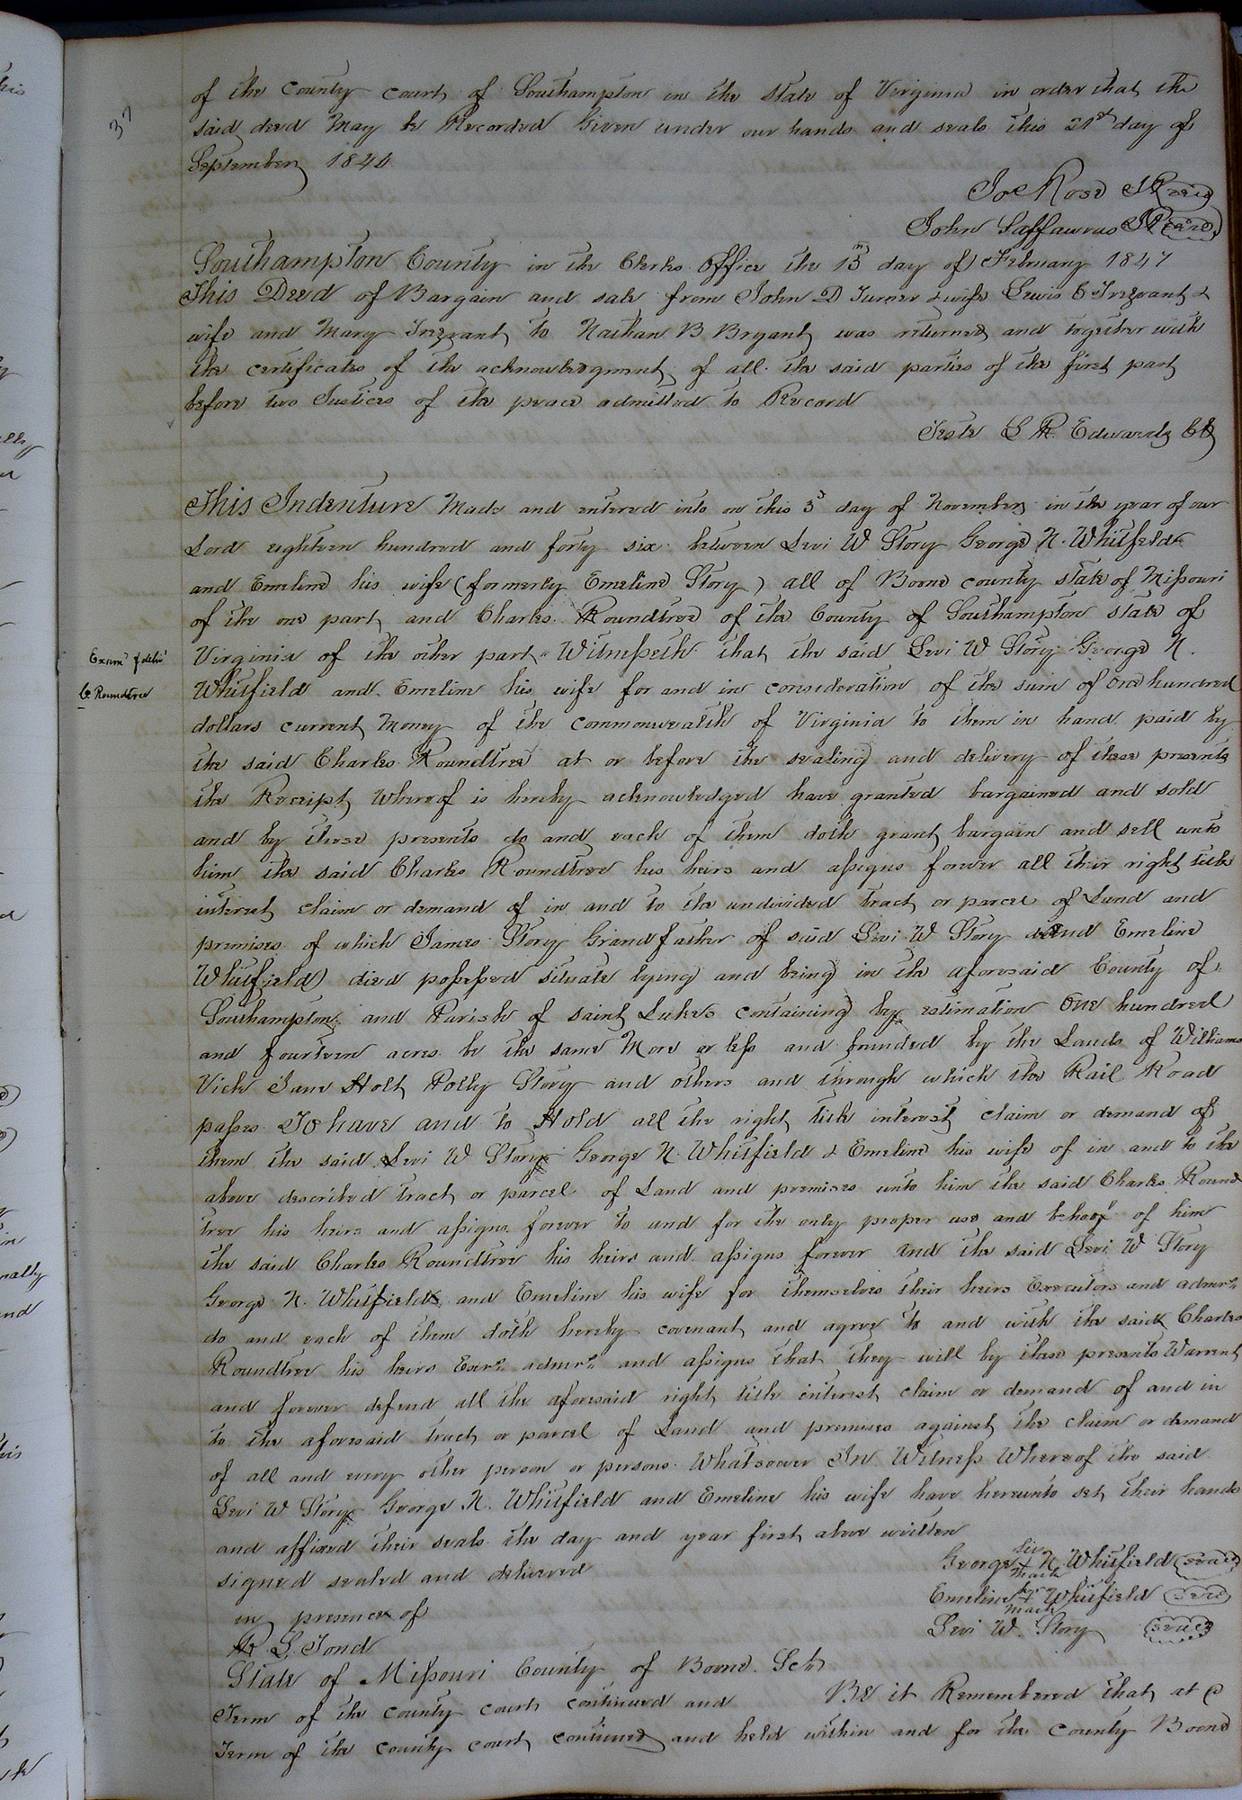 37
of the County court of Southampton in the State of Virginia in order that the
said deed may be Recorded Given under our hands and seals this 21st day of
September 1844
Jo Rose JP (seal)
John Saffarrans JP (seal)
Southampton County in the Clerks office the 15th day of February 1847
This Deed of Bargain and sale from John D Turner & wife Lewis C Trezvant &
wife and Mary Trezvant to Nathan B Bryant was returned and together with
the certificates of the acknowledgment of all the said parties of the first part
before two Justices of the peace admitted to Record
Teste L R Edwards Clk
This Indenture Made and entered into on this 3d day of November in the year of our
Lord eighteen hundred and forty six between Levi W Story George N. Whitfield
and Emeline his wife (formerly Emeline Story) all of Boone county state of Missouri
of the one part and Charles Roundtree of the County of Southampton State of
Virginia of the other part Witnesseth that the said Levi W Story George N.
Exam d & deliv d
C Roundtree
Whitfield and Emeline his wife for and in consideration of the sum of One hundred
dollars current Money of the commonwealth of Virginia to them in hand paid by
the said Charles Roundtree at or before the sealing and delivery of these presents
the Receipt Whereof is hereby acknowledged have granted bargained and sold
and by these presents do and each of them doth grant bargain and sell unto
him the said Charles Roundtree his heirs and assigns forever all their right title
interest claim or demand of in and to the undivided tract or parcel of Land and
premises of which James Story Grandfather of said Levi W Story and Emeline
Whitfield died possessed situate lying and being in the aforesaid County of
Southampton and Parish of saint Lukes containing by estimation One hundred
and fourteen acres be the same More or less and bounded by the Lands of Williams
Vick Jane Holt Polly Story and others and through which the Rail Road
passes To have and to Hold all the right title interest claim or demand of
them the said Levi W Story George N. Whitfield & Emeline his wife of in and to the
above described tract or parcel of Land and premises unto him the said Charles Round
tree his heirs and assigns forever to and for the only proper use and behoof of him
the said Charles Roundtree his heirs and assigns forever and the said Levi W Story
George N. Whitfield and Emeline his wife for themselves their heirs Executors and admrs
do and each of them doth hereby covenant and agree to and with the said Charles
Roundtree his heirs Exers admrs and assigns that they will by these presents Warrent
and forever defend all the aforesaid right title interest claim or demand of and in
to the aforesaid tract or parcel of Land and premises against the claim or demand
of all and every other person or persons Whatsoever In Witness Whereof the said
Levi W Story George N. Whitfield and Emeline his wife have hereunto set their hands
and affixed their seals the day and year first above written
signed sealed and delivered
in presence of
R L Tond
George his + mark N Whitfield (seal)
Emeline her + mark Whitfield (seal)
Levi W. Story (seal)
State of Missouri County of Boone Sct
Term of the county court continued and Be it Remembered that at a
Term of the county court continued and held within and for the County Boone